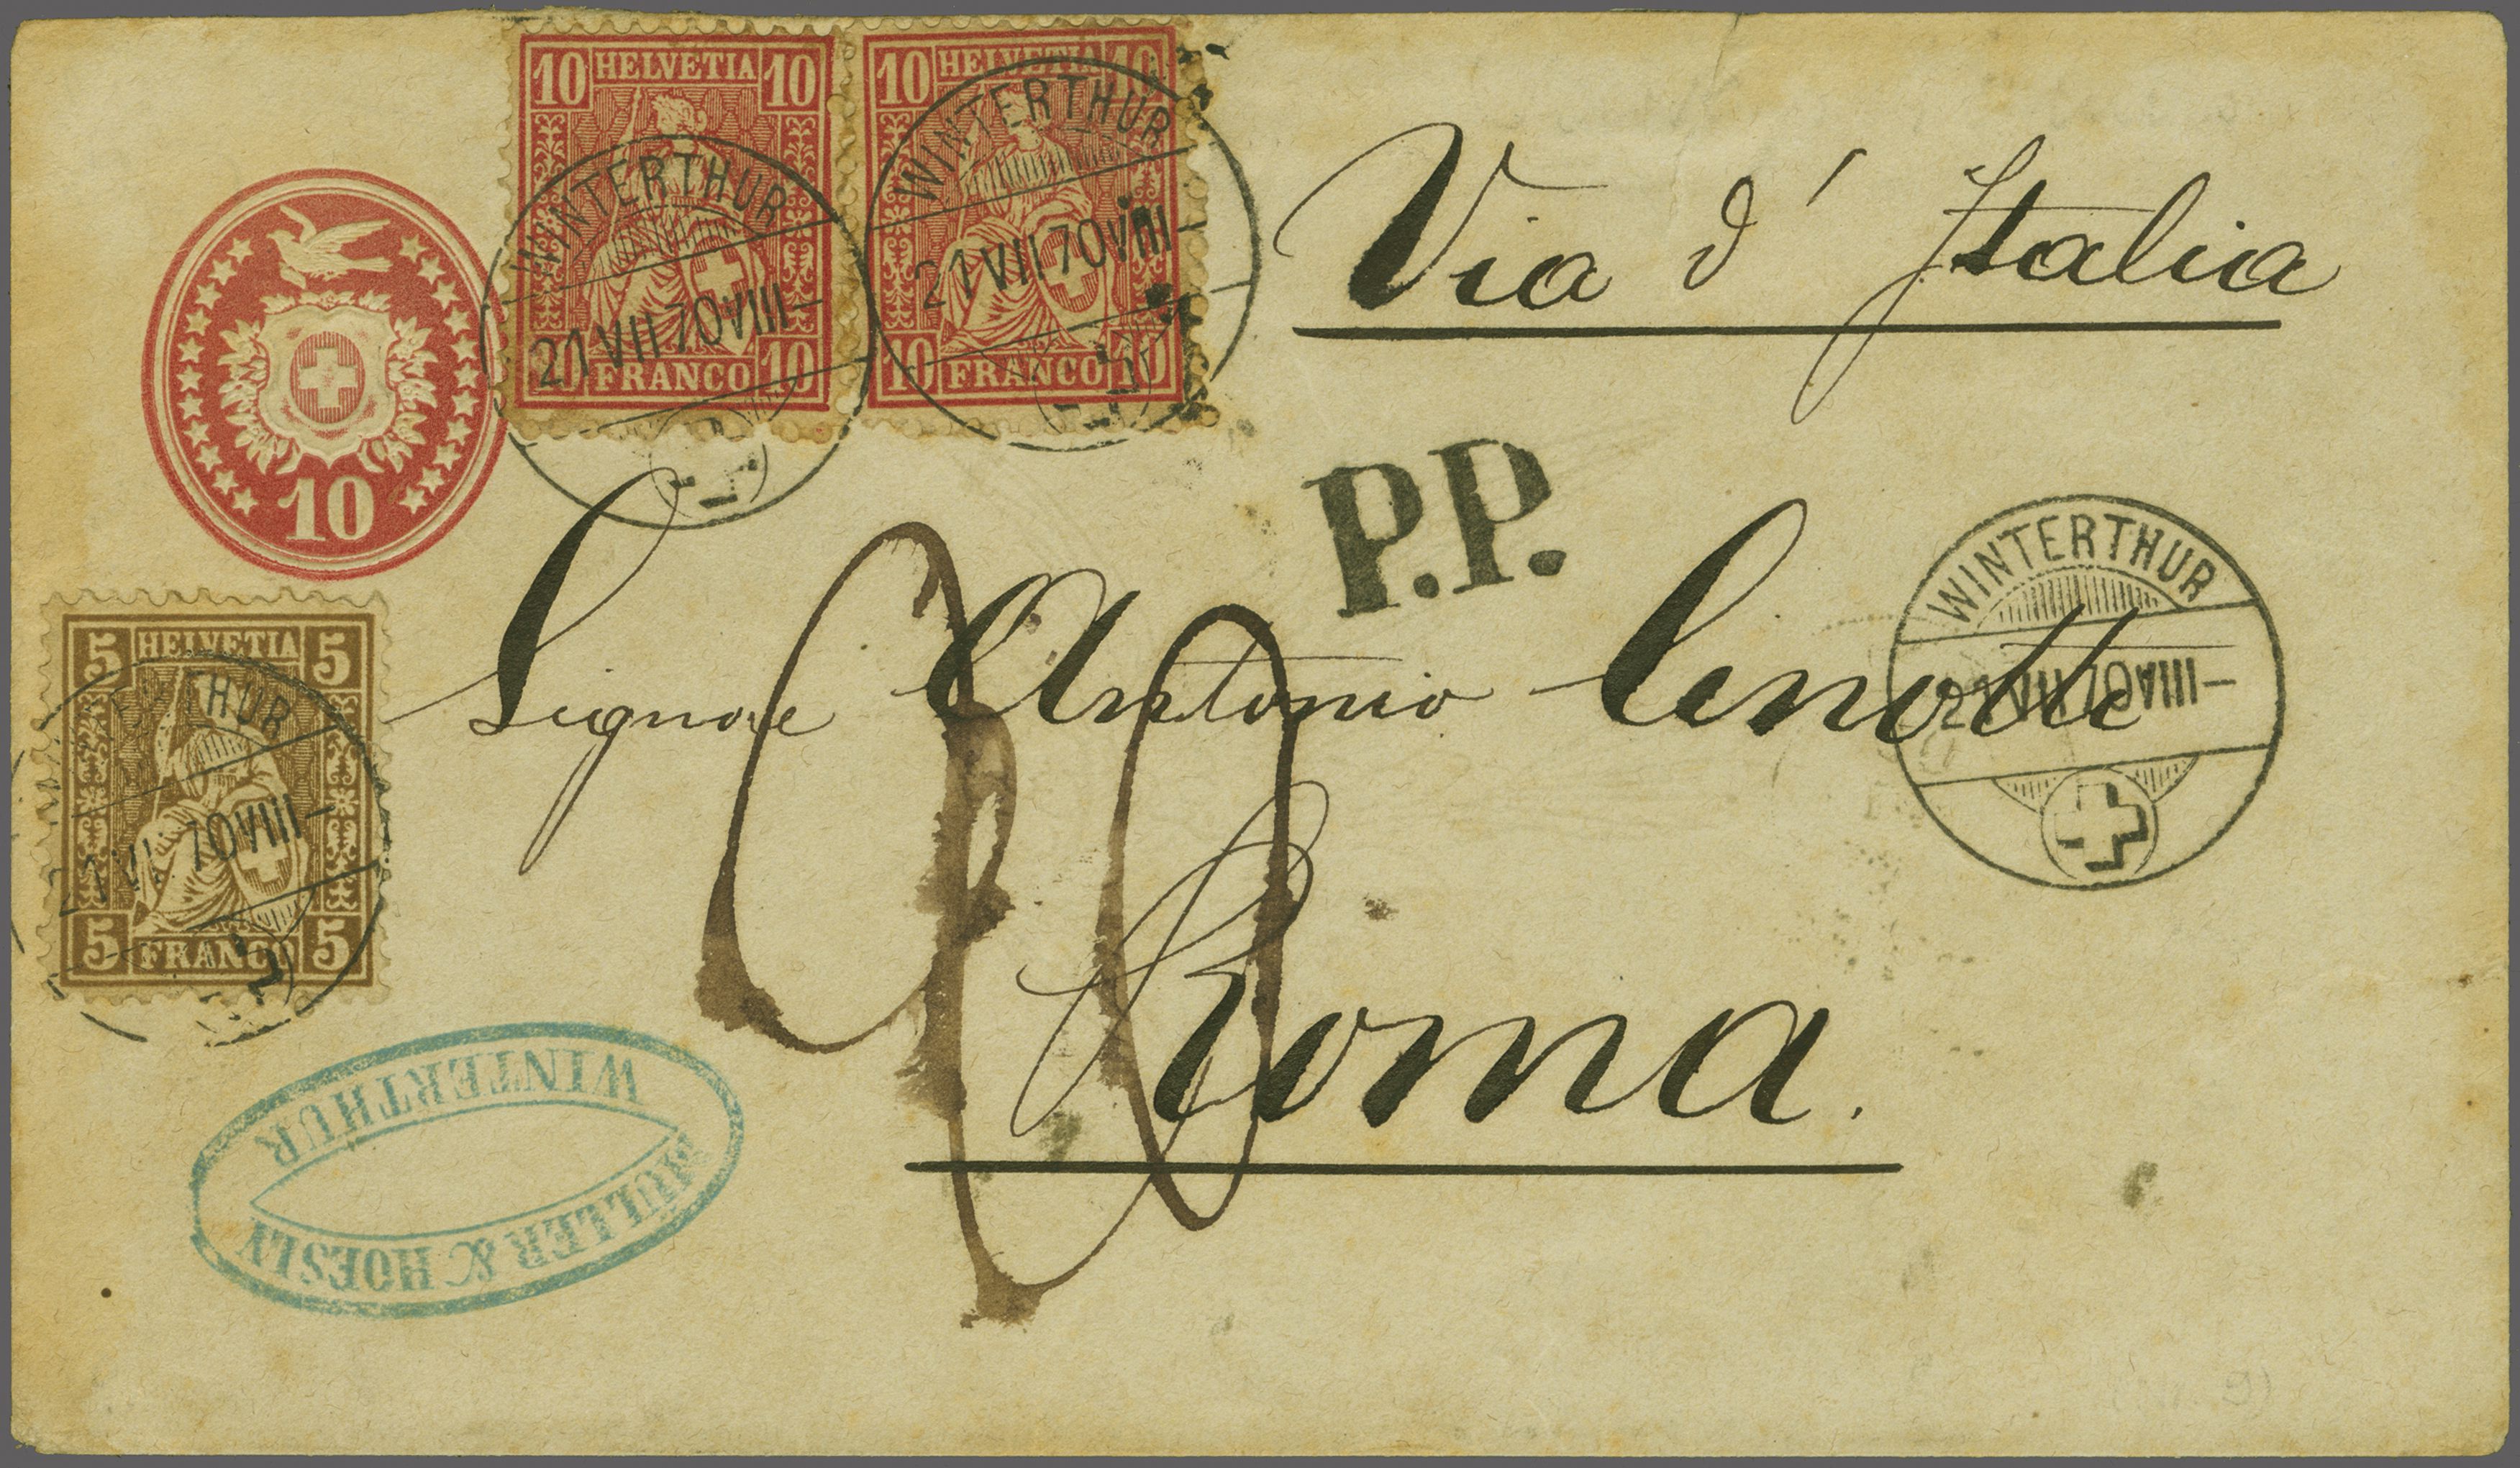 10 HELVETIA 10
10 FRANCO 10
WINTERTHUR
21 VII 70 VIII–
10 HELVETIA 10
10 FRANCO 10
WINTERTHUR
21 VII 70 VIII–
Via d' Italia
10
P.P.
WINTERTHUR
21 VII 70 VIII–
Signore Antonio
5 HELVETIA 5
5 FRANCO 5
WINTERTHUR
21 VII 70 VIII–
Roma.
WINTERTHUR
MÜLLER & HOESLY